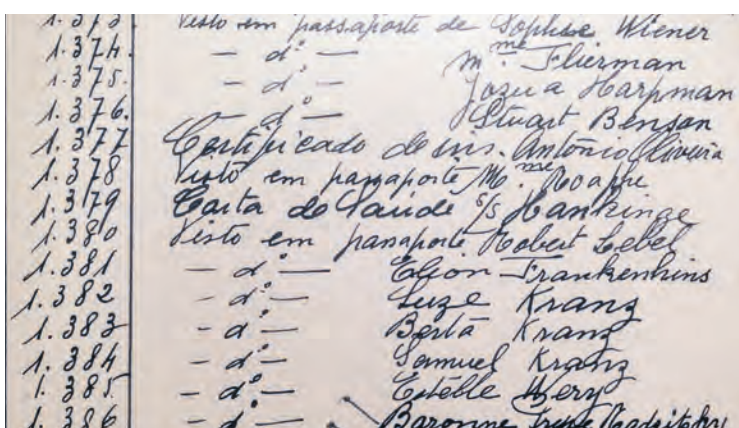 1.373 Visto em passaporte de Sophie Wiener
1.374. — dº — Mme Flierman
1.375. — dº — Jozua Harpman
1.376. — dº — Stuart Benson
1.377 Certificado de ins. António Oliveira
1.378 Visto em passaporte Mme
1.379 Carta de Saúde s/s Hankinge
1.380 Visto em passaporte Robert Lebel
1.381 — dº — Elion
1.382 — dº — Suze Kranz
1.383 — dº — Berta Kranz
1.384 — dº — Samuel Kranz
1.385 — dº — Estelle Wery
1.386 — dº — Baronne Irene